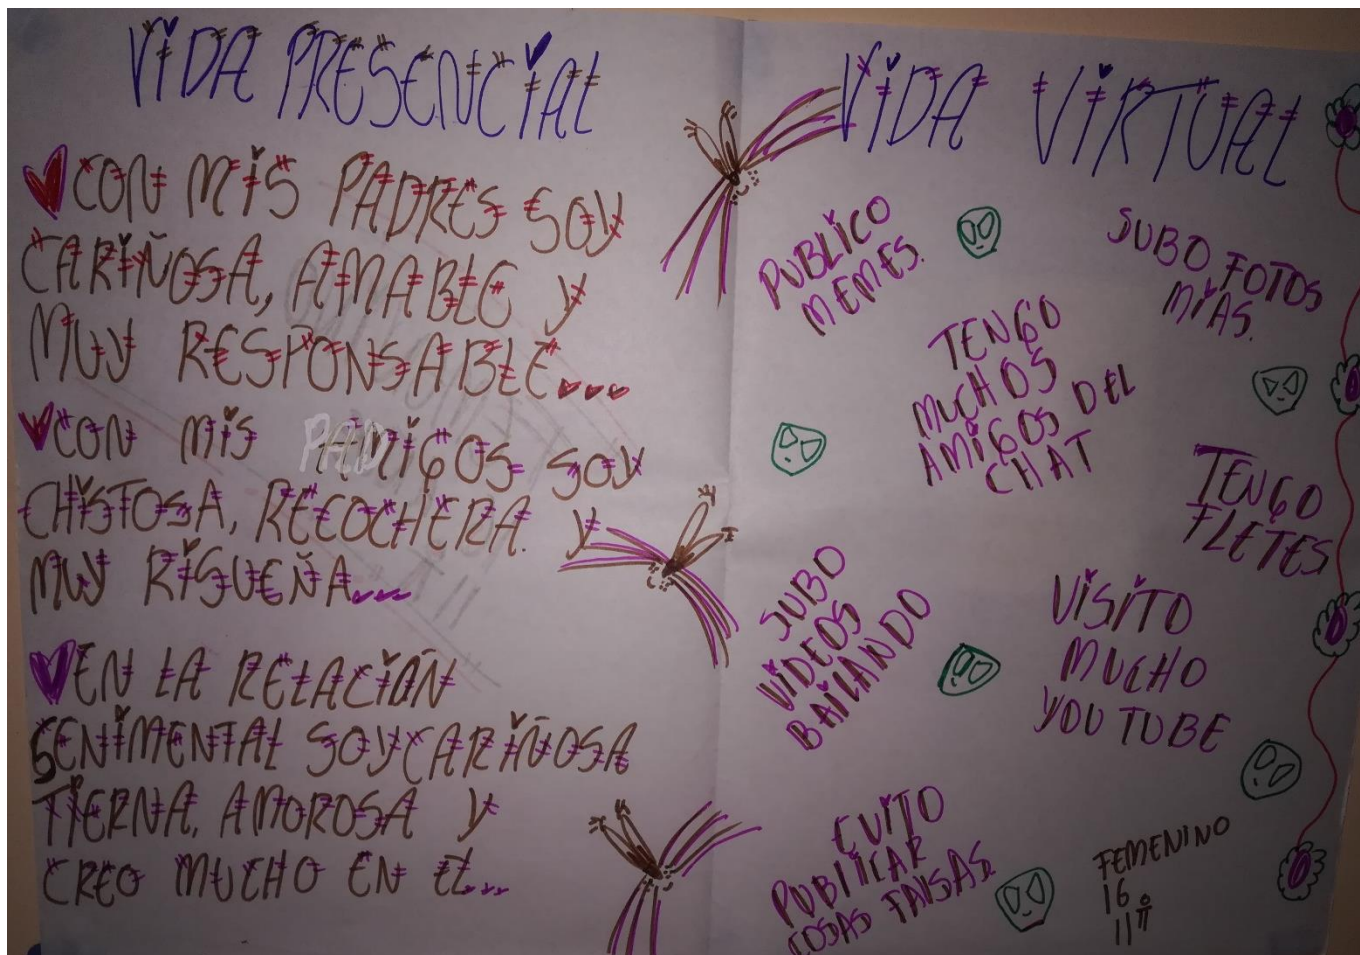 VIDA PRESENCIAL
CON MIS PADRES SOY
CARIÑOSA, AMABLE Y
MUY RESPONSABLE...
CON MIS AMIGOS SOY
CHISTOSA, RECOCHERA Y
MUY RISUEÑA...
EN LA RELACIÓN
SENIMENTAL SOY CARIÑOSA
TIERNA, AMOROSA Y
CREO MUCHO EN EL...
VIDA VIRTUAL
PUBLICO
MEMES.
SUBO FOTOS
MÍAS.
TENGO
MUCHOS
AMIGOS DEL
CHAT
TENGO
FLETES
SUBO
VIDEOS
BAILANDO
VISITO
MUCHO
YOU TUBE
EVITO
PUBLICAR
COSAS FANSAS.
FEMENINO
16